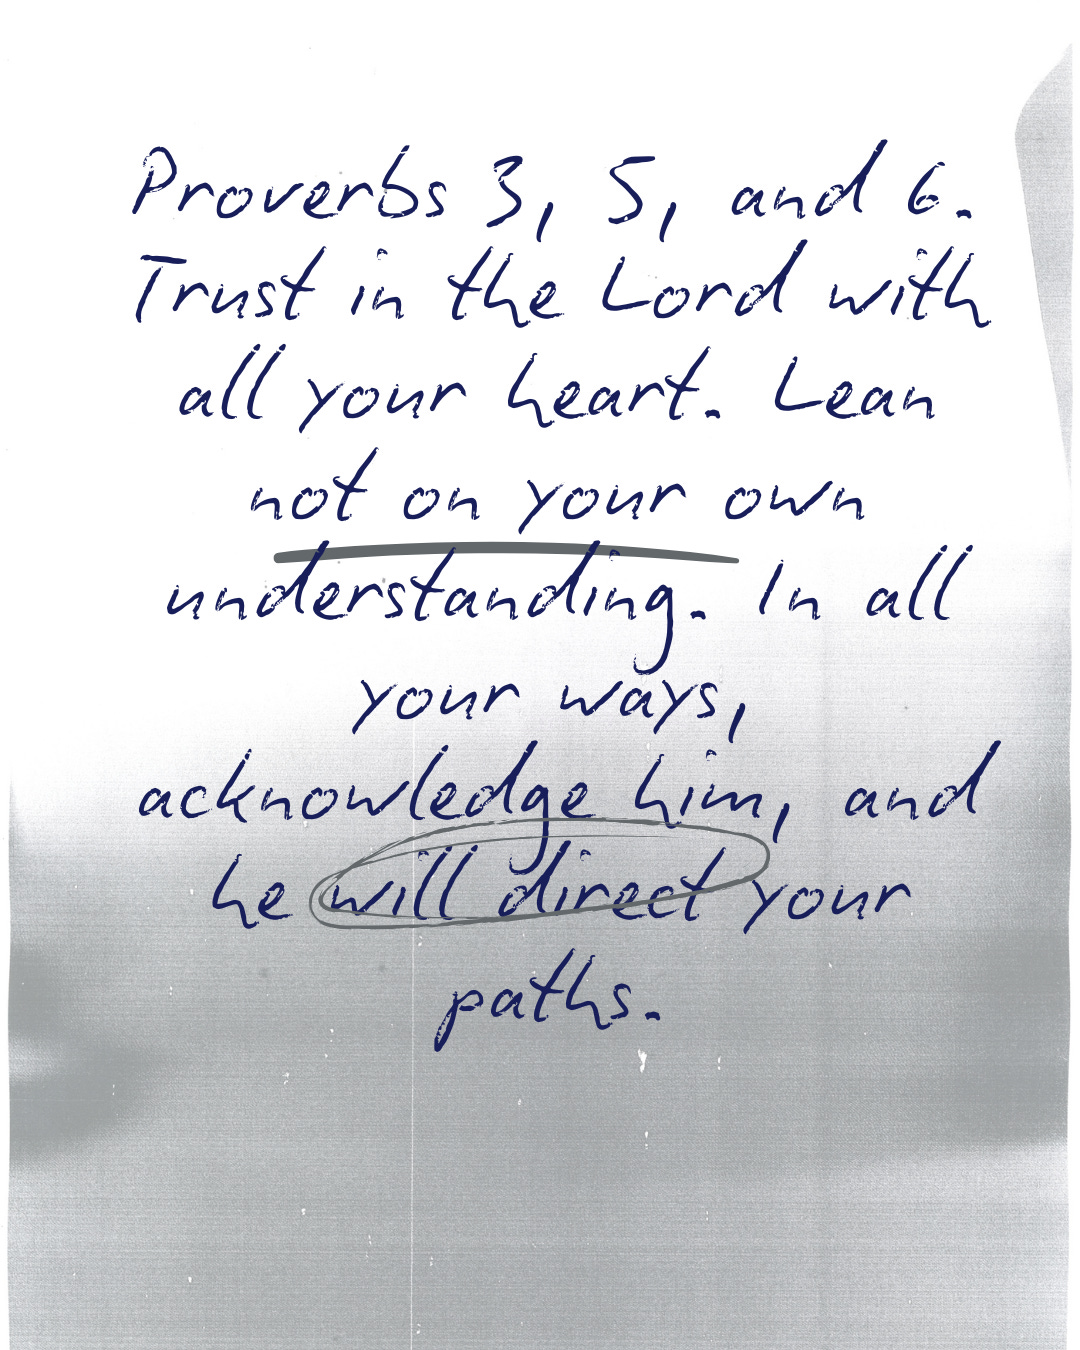 Proverbs 3, 5, and 6.
Trust in the Lord with
all your heart. Lean
not on your own
understanding. In all
your ways,
acknowledge him, and
he will direct your
paths.